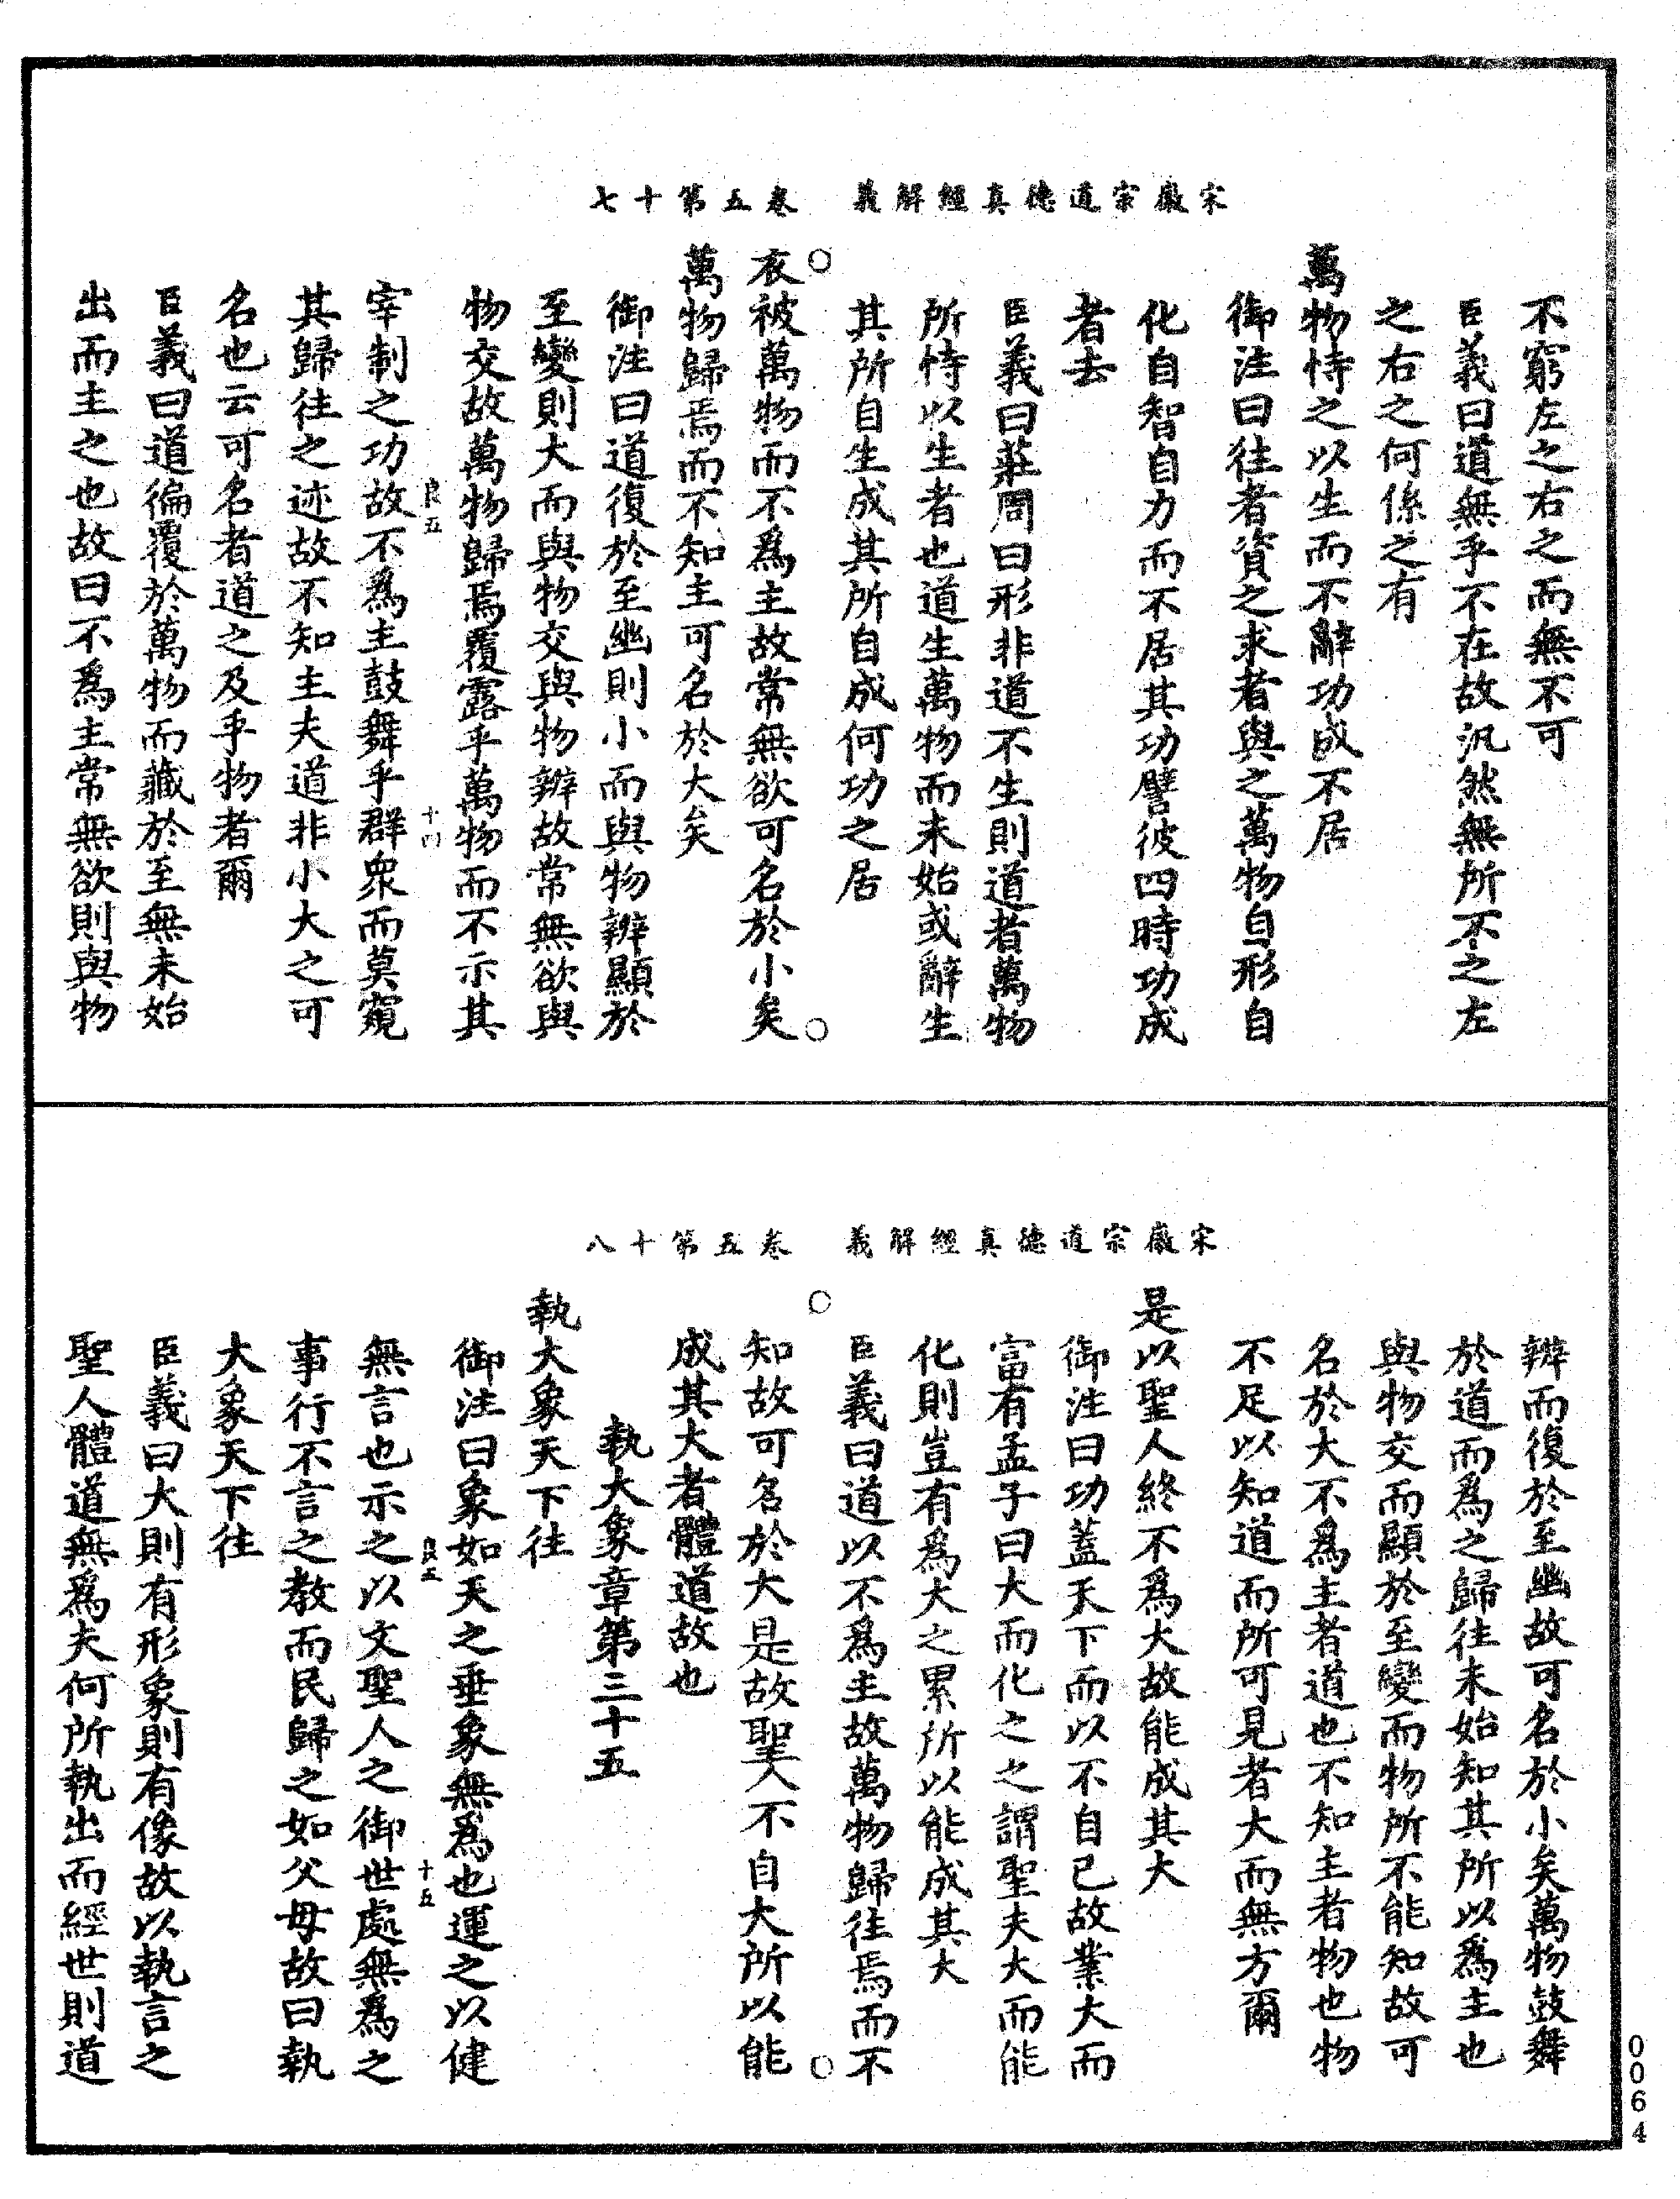 宋徽宗道德真經解義　卷五第十七
不窮左之右之而無不可
臣義曰道無乎不在故汎然無所不之左
之右之何係之有
萬物恃之以生而不辭功成不居
御注曰往者資之求者與之萬物自形自
化自智自力而不居其功譬彼四時功成
者去
臣義曰莊周曰形非道不生則道者萬物
所恃以生者也道生萬物而未始或辭生
其所自生成其所自成何功之居
衣被萬物而不爲主故常無欲可名於小矣
萬物歸焉而不知主可名於大矣
御注曰道復於至幽則小而與物辨顯於
至變則大而與物交與物辨故常無欲與
物交故萬物歸焉覆露乎萬物而不示其
良五　十四
宰制之功故不為主鼓舞乎群衆而莫窺
其歸往之迹故不知主夫道非小大之可
名也云可名者道之及乎物者爾
臣義曰道徧覆於萬物而藏於至無未始
出而主之也故曰不爲主常無欲則與物
宋徽宗道德真經解義　卷五第十八
辨而復於至幽故可名於小矣萬物鼓舞
於道而爲之歸往未始知其所以爲主也
與物交而顯於至變而物所不能知故可
名於大不爲主者道也不知主者物也物
不足以知道而所可見者大而無方爾
是以聖人終不爲大故能成其大
御注曰功蓋天下而以不自已故業大而
富有孟子曰大而化之之謂聖夫大而能
化則豈有爲大之累所以能成其大
臣義曰道以不爲主故萬物歸往焉而不
知故可名於大是故聖人不自大所以能
成其大者體道故也
執大象章第三十五
執大象天下往
御注曰象如天之垂象無爲也運之以健
良五　十五
無言也示之以文聖人之御世處無為之
事行不言之教而民歸之如父母故曰執
大象天下往
臣義曰大則有形象則有像故以執言之
聖人體道無爲夫何所執出而經世則道
0064